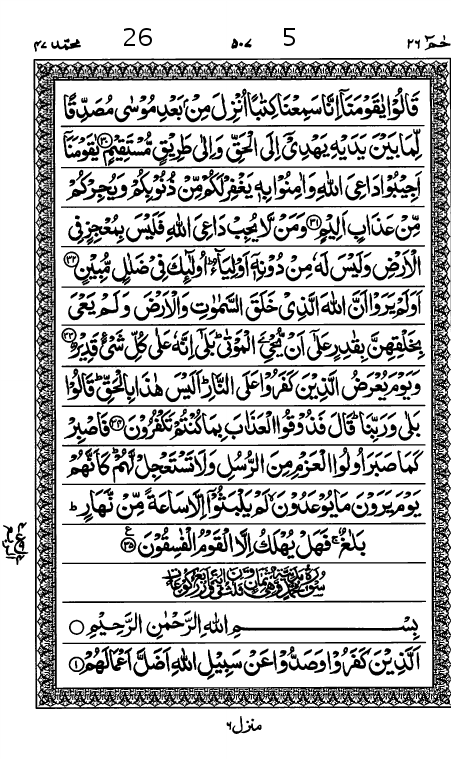 حٰمٓ ٢٦ 5 ٥٠٧ 26 محمّد ٤٧
قَالُوْا يٰقَوْمَنَاۤ اِنَّا سَمِعْنَا كِتٰبًا اُنْزِلَ مِنْۢ بَعْدِ مُوْسٰى مُصَدِّقًا
لِّمَا بَيْنَ يَدَيْهِ يَهْدِيْۤ اِلَى الْحَقِّ وَاِلٰى طَرِيْقٍ مُّسْتَقِيْمٍ ﴿٣٠﴾ يٰقَوْمَنَاۤ
اَجِيْبُوْا دَاعِيَ اللّٰهِ وَاٰمِنُوْا بِهٖ يَغْفِرْ لَكُمْ مِّنْ ذُنُوْبِكُمْ وَيُجِرْكُمْ
مِّنْ عَذَابٍ اَلِيْمٍ ﴿٣١﴾ وَمَنْ لَّا يُجِبْ دَاعِيَ اللّٰهِ فَلَيْسَ بِمُعْجِزٍ فِي
الْاَرْضِ وَلَيْسَ لَهٗ مِنْ دُوْنِهٖۤ اَوْلِيَآءُ ؕ اُولٰٓئِكَ فِيْ ضَلٰلٍ مُّبِيْنٍ ﴿٣٢﴾
اَوَلَمْ يَرَوْا اَنَّ اللّٰهَ الَّذِيْ خَلَقَ السَّمٰوٰتِ وَالْاَرْضَ وَلَمْ يَعْيَ
بِخَلْقِهِنَّ بِقٰدِرٍ عَلٰۤى اَنْ يُّحْيِۦَ الْمَوْتٰى ؕ بَلٰۤى اِنَّهٗ عَلٰى كُلِّ شَيْءٍ قَدِيْرٌ ﴿٣٣﴾
وَيَوْمَ يُعْرَضُ الَّذِيْنَ كَفَرُوْا عَلَى النَّارِ ؕ اَلَيْسَ هٰذَا بِالْحَقِّ ؕ قَالُوْا
بَلٰى وَرَبِّنَا ؕ قَالَ فَذُوْقُوا الْعَذَابَ بِمَا كُنْتُمْ تَكْفُرُوْنَ ﴿٣٤﴾ فَاصْبِرْ
كَمَا صَبَرَ اُولُوا الْعَزْمِ مِنَ الرُّسُلِ وَلَا تَسْتَعْجِلْ لَّهُمْ ؕ كَاَنَّهُمْ
يَوْمَ يَرَوْنَ مَا يُوْعَدُوْنَ ۙ لَمْ يَلْبَثُوْۤا اِلَّا سَاعَةً مِّنْ نَّهَارٍ ؕ
بَلٰغٌ ۚ فَهَلْ يُهْلَكُ اِلَّا الْقَوْمُ الْفٰسِقُوْنَ ﴿٣٥﴾
بِسْمِ اللّٰهِ الرَّحْمٰنِ الرَّحِيْمِ ○
اَلَّذِيْنَ كَفَرُوْا وَصَدُّوْا عَنْ سَبِيْلِ اللّٰهِ اَضَلَّ اَعْمَالَهُمْ ﴿١﴾
منزل ٦